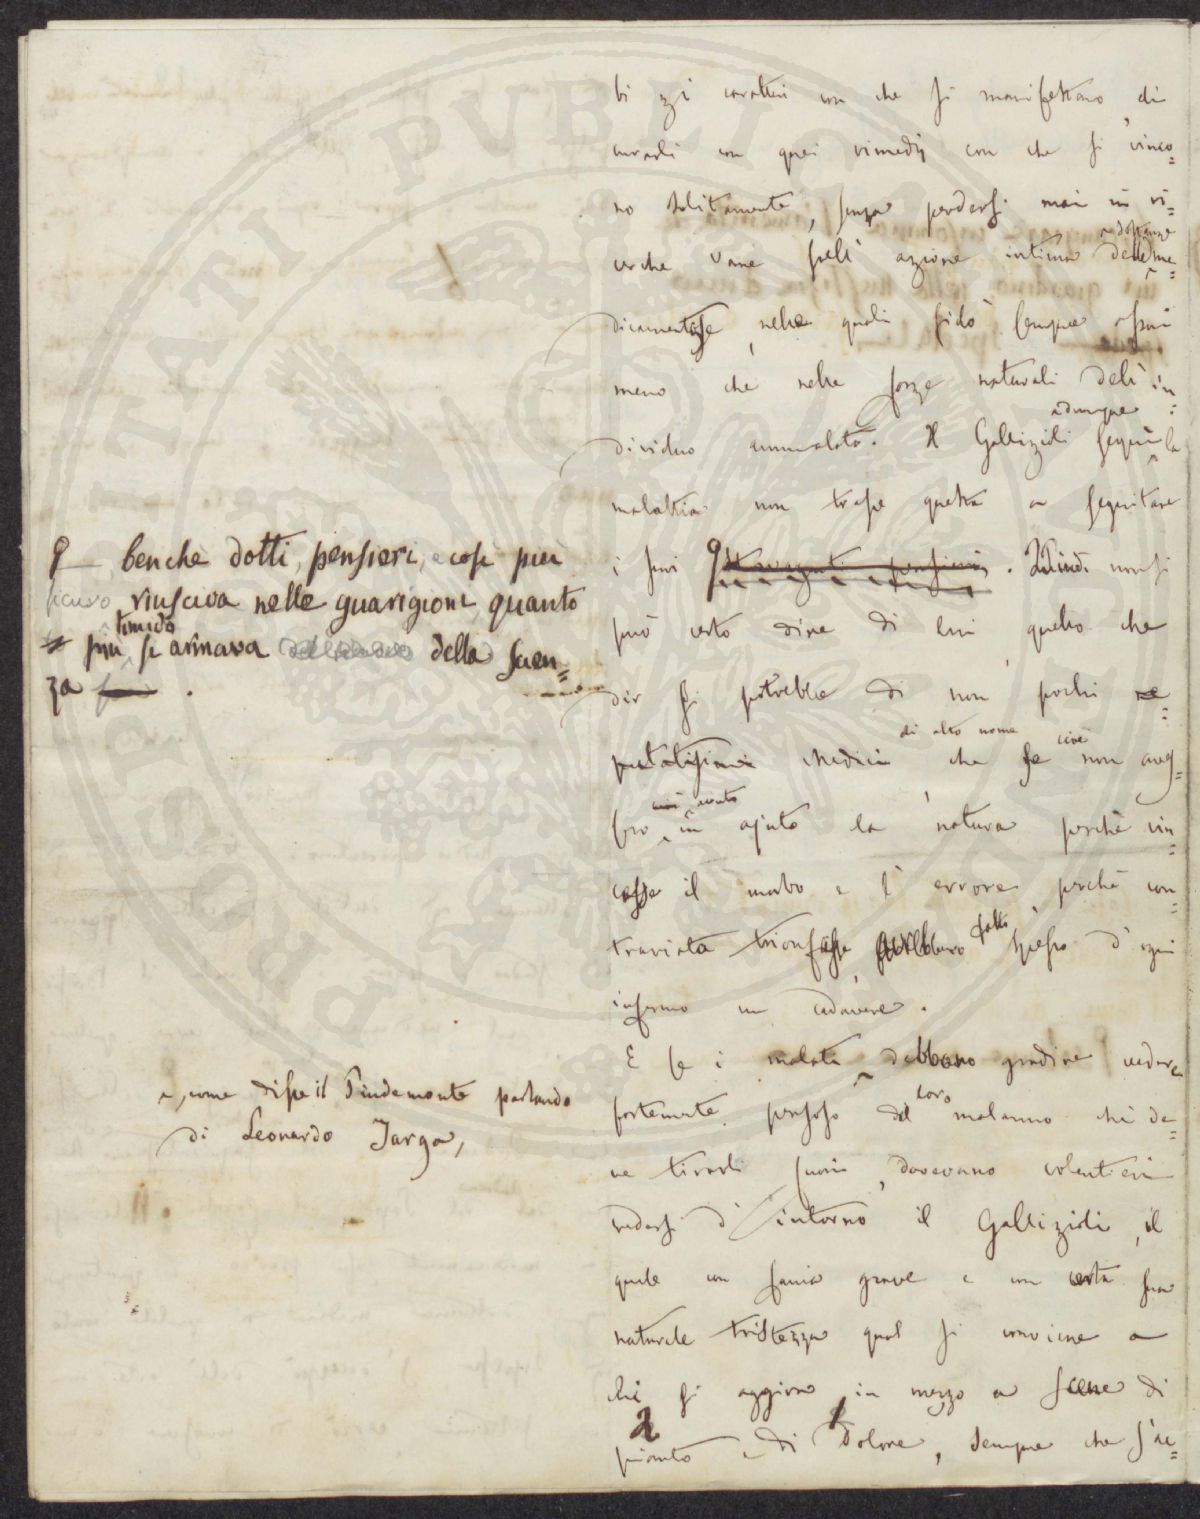 bi gi caratteri con che si manifestano, di
curarli con quei rimedij con che si vinco=
no solitamente, senza perdersi mai in ri=
cerche vane sull' azione intima delle me=
e dosanze
dicamentose, nelle quali fidò sempre assai
meno che nelle forze naturali dell' in=
adunque
dividuo ammalato. Il Gallizioli seguì la
malattia non trasse questa a seguitare
i suoi stravaganti pensieri. Quindi non si
può certo dire di lui quello che
dir si potrebbe di non pochi re=
di alto nome cioè
putatissimi Medici che se non aves=
venuto
sero in ajuto la natura perchè vin=
cesse il morbo e l' errore, perchè con=
trariata trionfasse, avrebbero fatto spesso d' ogni
infermo un cadavere.
E se i malati debbono gradire veder
loro
fortemente pensoso del malanno chi de=
ve tirarli fuori, dovevano volentieri
vedersi d' intorno il Gallizioli, il
quale con faccia grave e con certa sua
naturale tristezza qual si conviene a
chi si aggira in mezzo a scene di
2 1
pianto e di dolore, sempre che s' ac=
benchè dotti, pensieri, e così più
sicuro riusciva nelle guarigioni, quanto
timido
più si armava della Scien=
za
e, come disse il Pindemonte parlando
di Leonardo Targa,
PUBLICAE